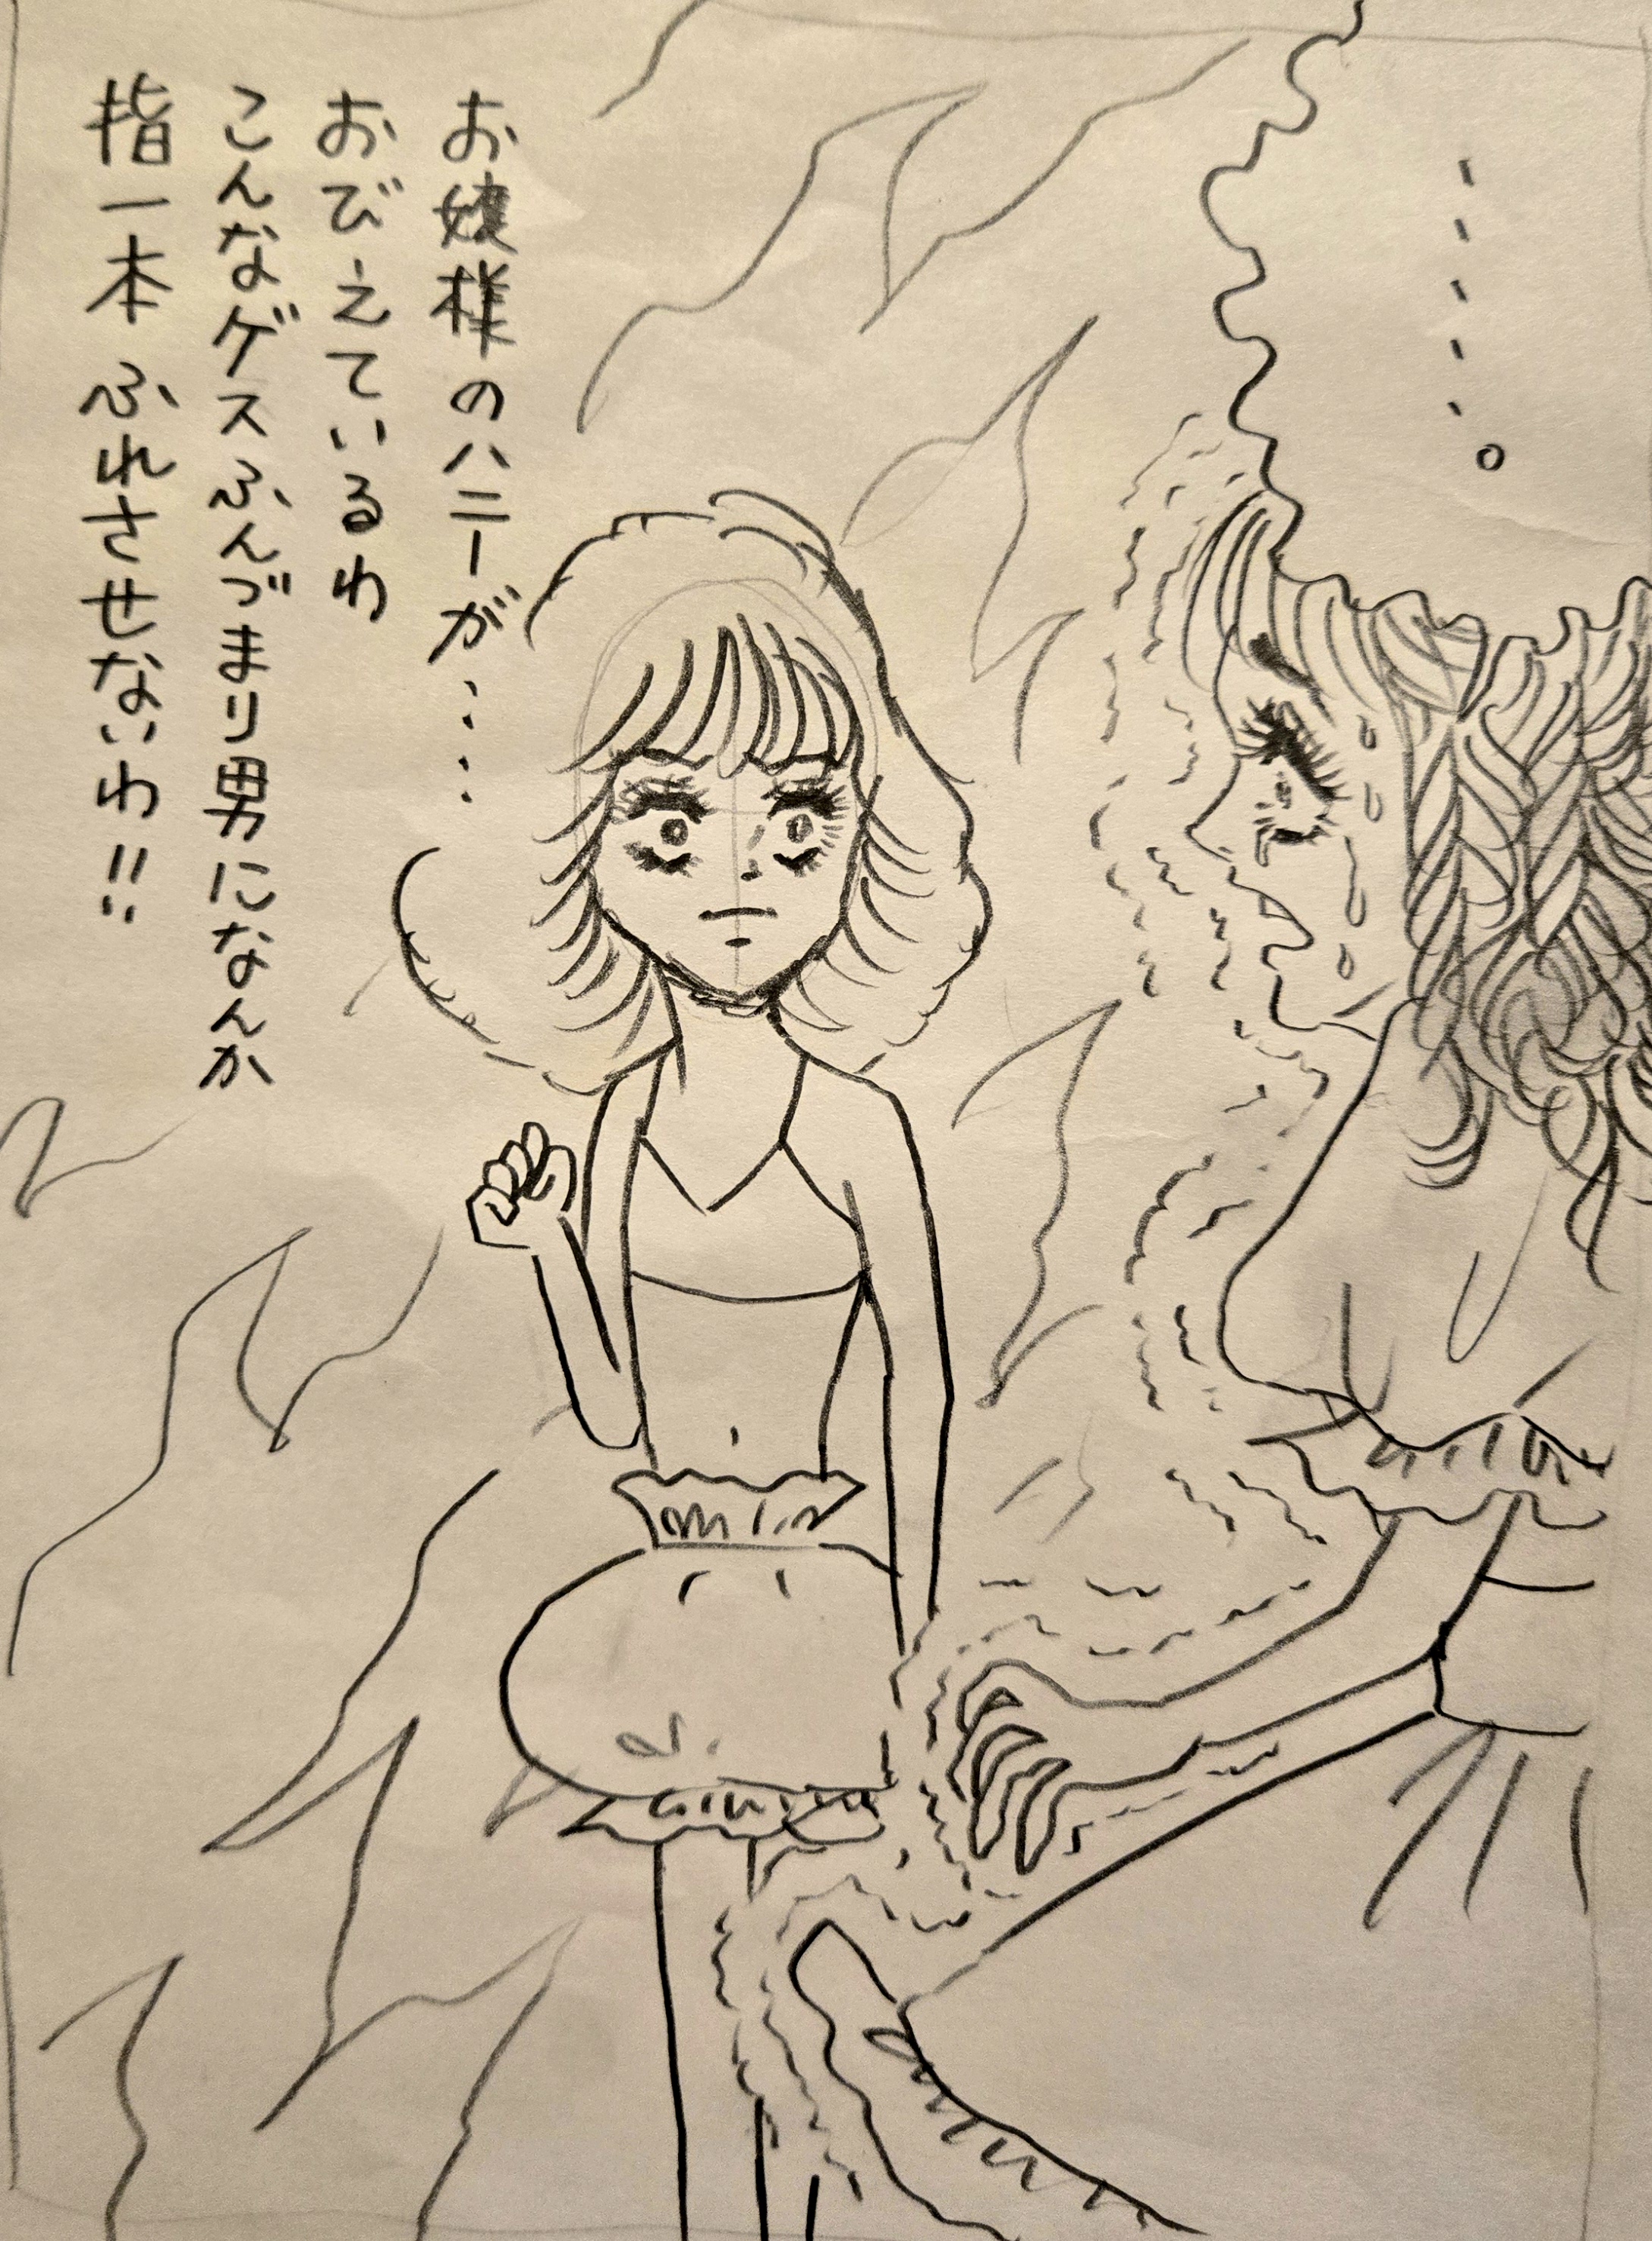 ・・・・・。
お嬢様のハニーが・・・・
おびえているわ
こんなゲスふんづまり男になんか
指一本ふれさせないわ!!